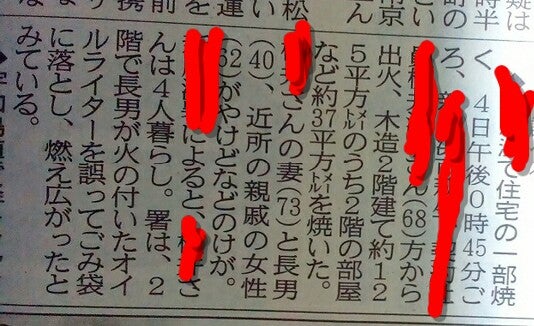 疑は
時半
町の
とい
南京
松
い
運
前
携
で住宅の一部焼
く　4日午後0時45分ご
ろ、
さん(68)方から
出火、木造2階建て約12
5平方㍍のうち2階の部屋
など約37平方㍍を焼いた。
さんの妻(73)と長男
(40)、近所の親戚の女性
(62)がやけどなどのけが。
によると、さ
んは4人暮らし。署は、2
階で長男が火の付いたオイ
ルライターを誤ってごみ袋
に落とし、燃え広がったと
みている。